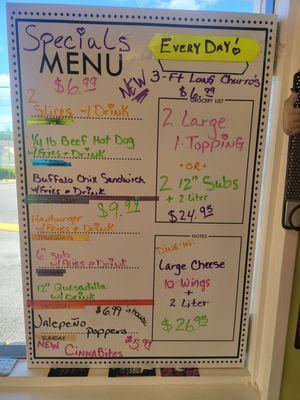 Specials
MENU
$6.99
2 Slices w/ Drink
1/4 lb Beef Hot Dog
w/Fries + Drink
Buffalo Chix Sandwich
w/Fries + Drink
$9.99
Hamburger
w/Fries + Drink
THURSDAY
6" sub
w/Fries + Drink
12" Quesadilla
w/ Drink
Jalepeño
Poppers
$6.99
SUNDAY
NEW
CinnaBites
$5.99
EVERY DAY!
NEW
3-Ft Long Churro's
$6.99
GROCERY LIST
2 Large
1-Topping
-OR-
2 12" Subs
+ 2 Liter
$24.95
NOTES
DINE-IN:
Large Cheese
10 Wings
+
2 Liter
$26.95